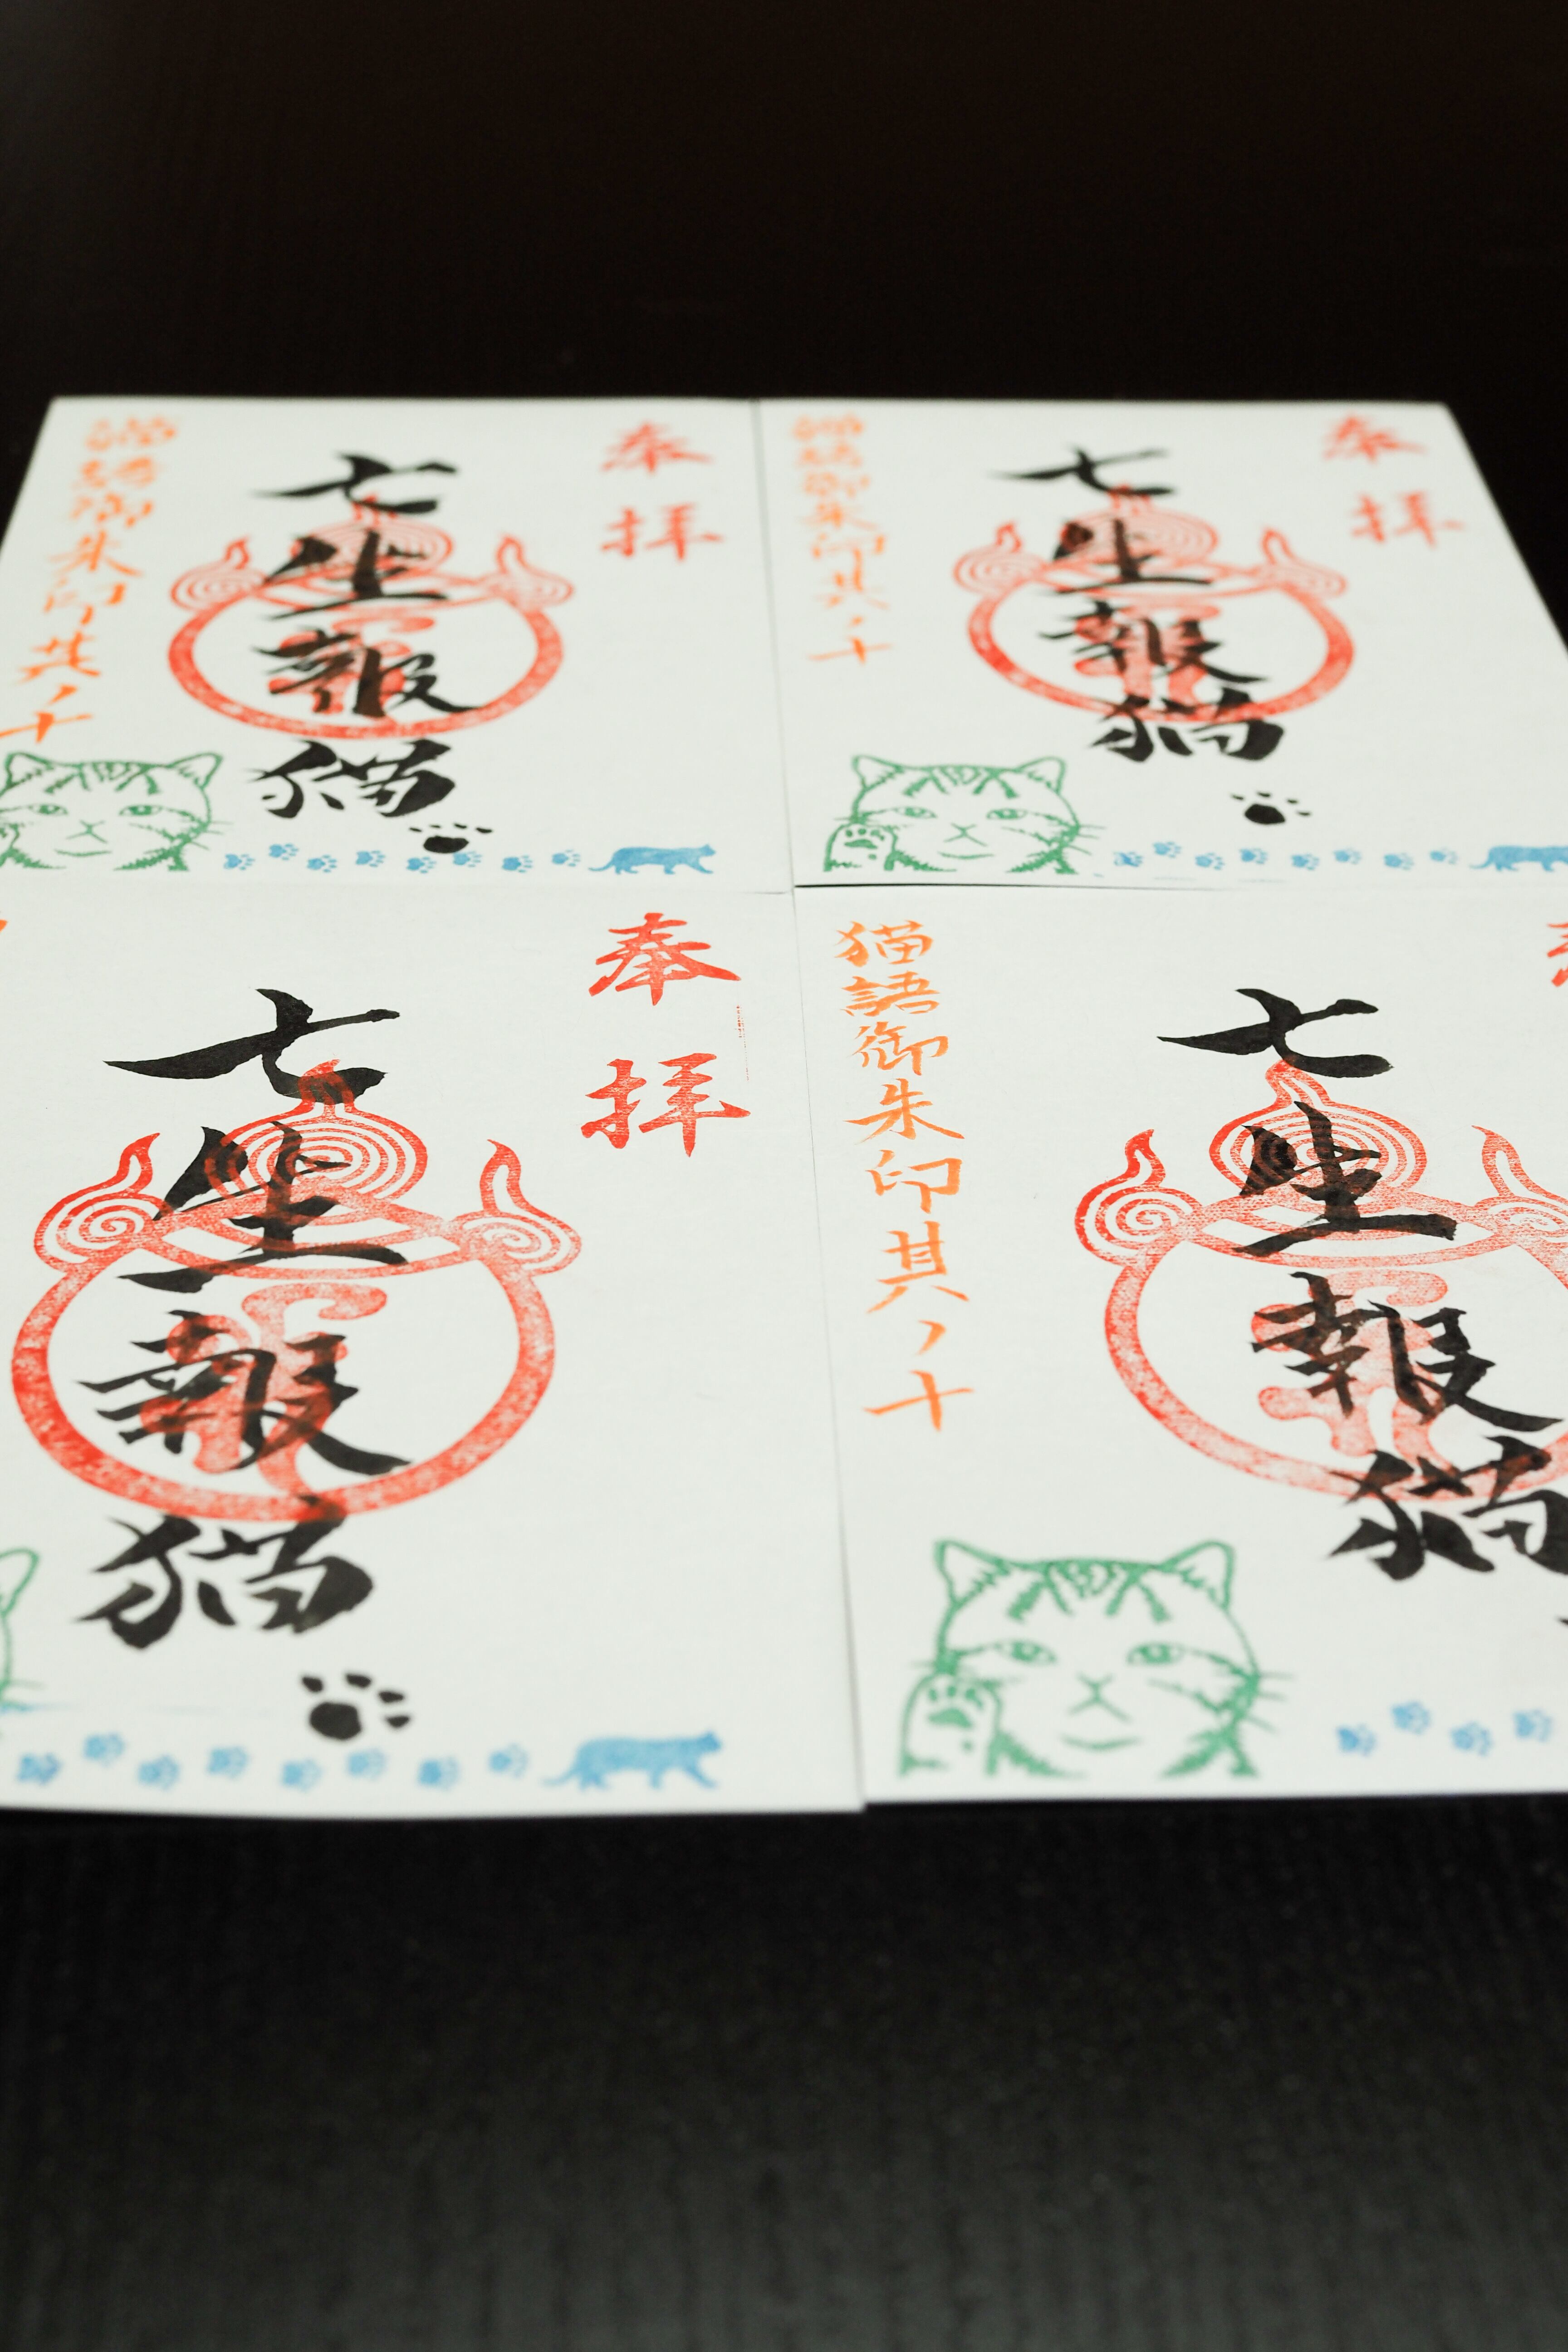 奉拝
七生報猫
猫語御朱印其ノ十
奉拝
七生報猫
猫語御朱印其ノ十
奉拝
七生報猫
七生報猫
猫語御朱印其ノ十